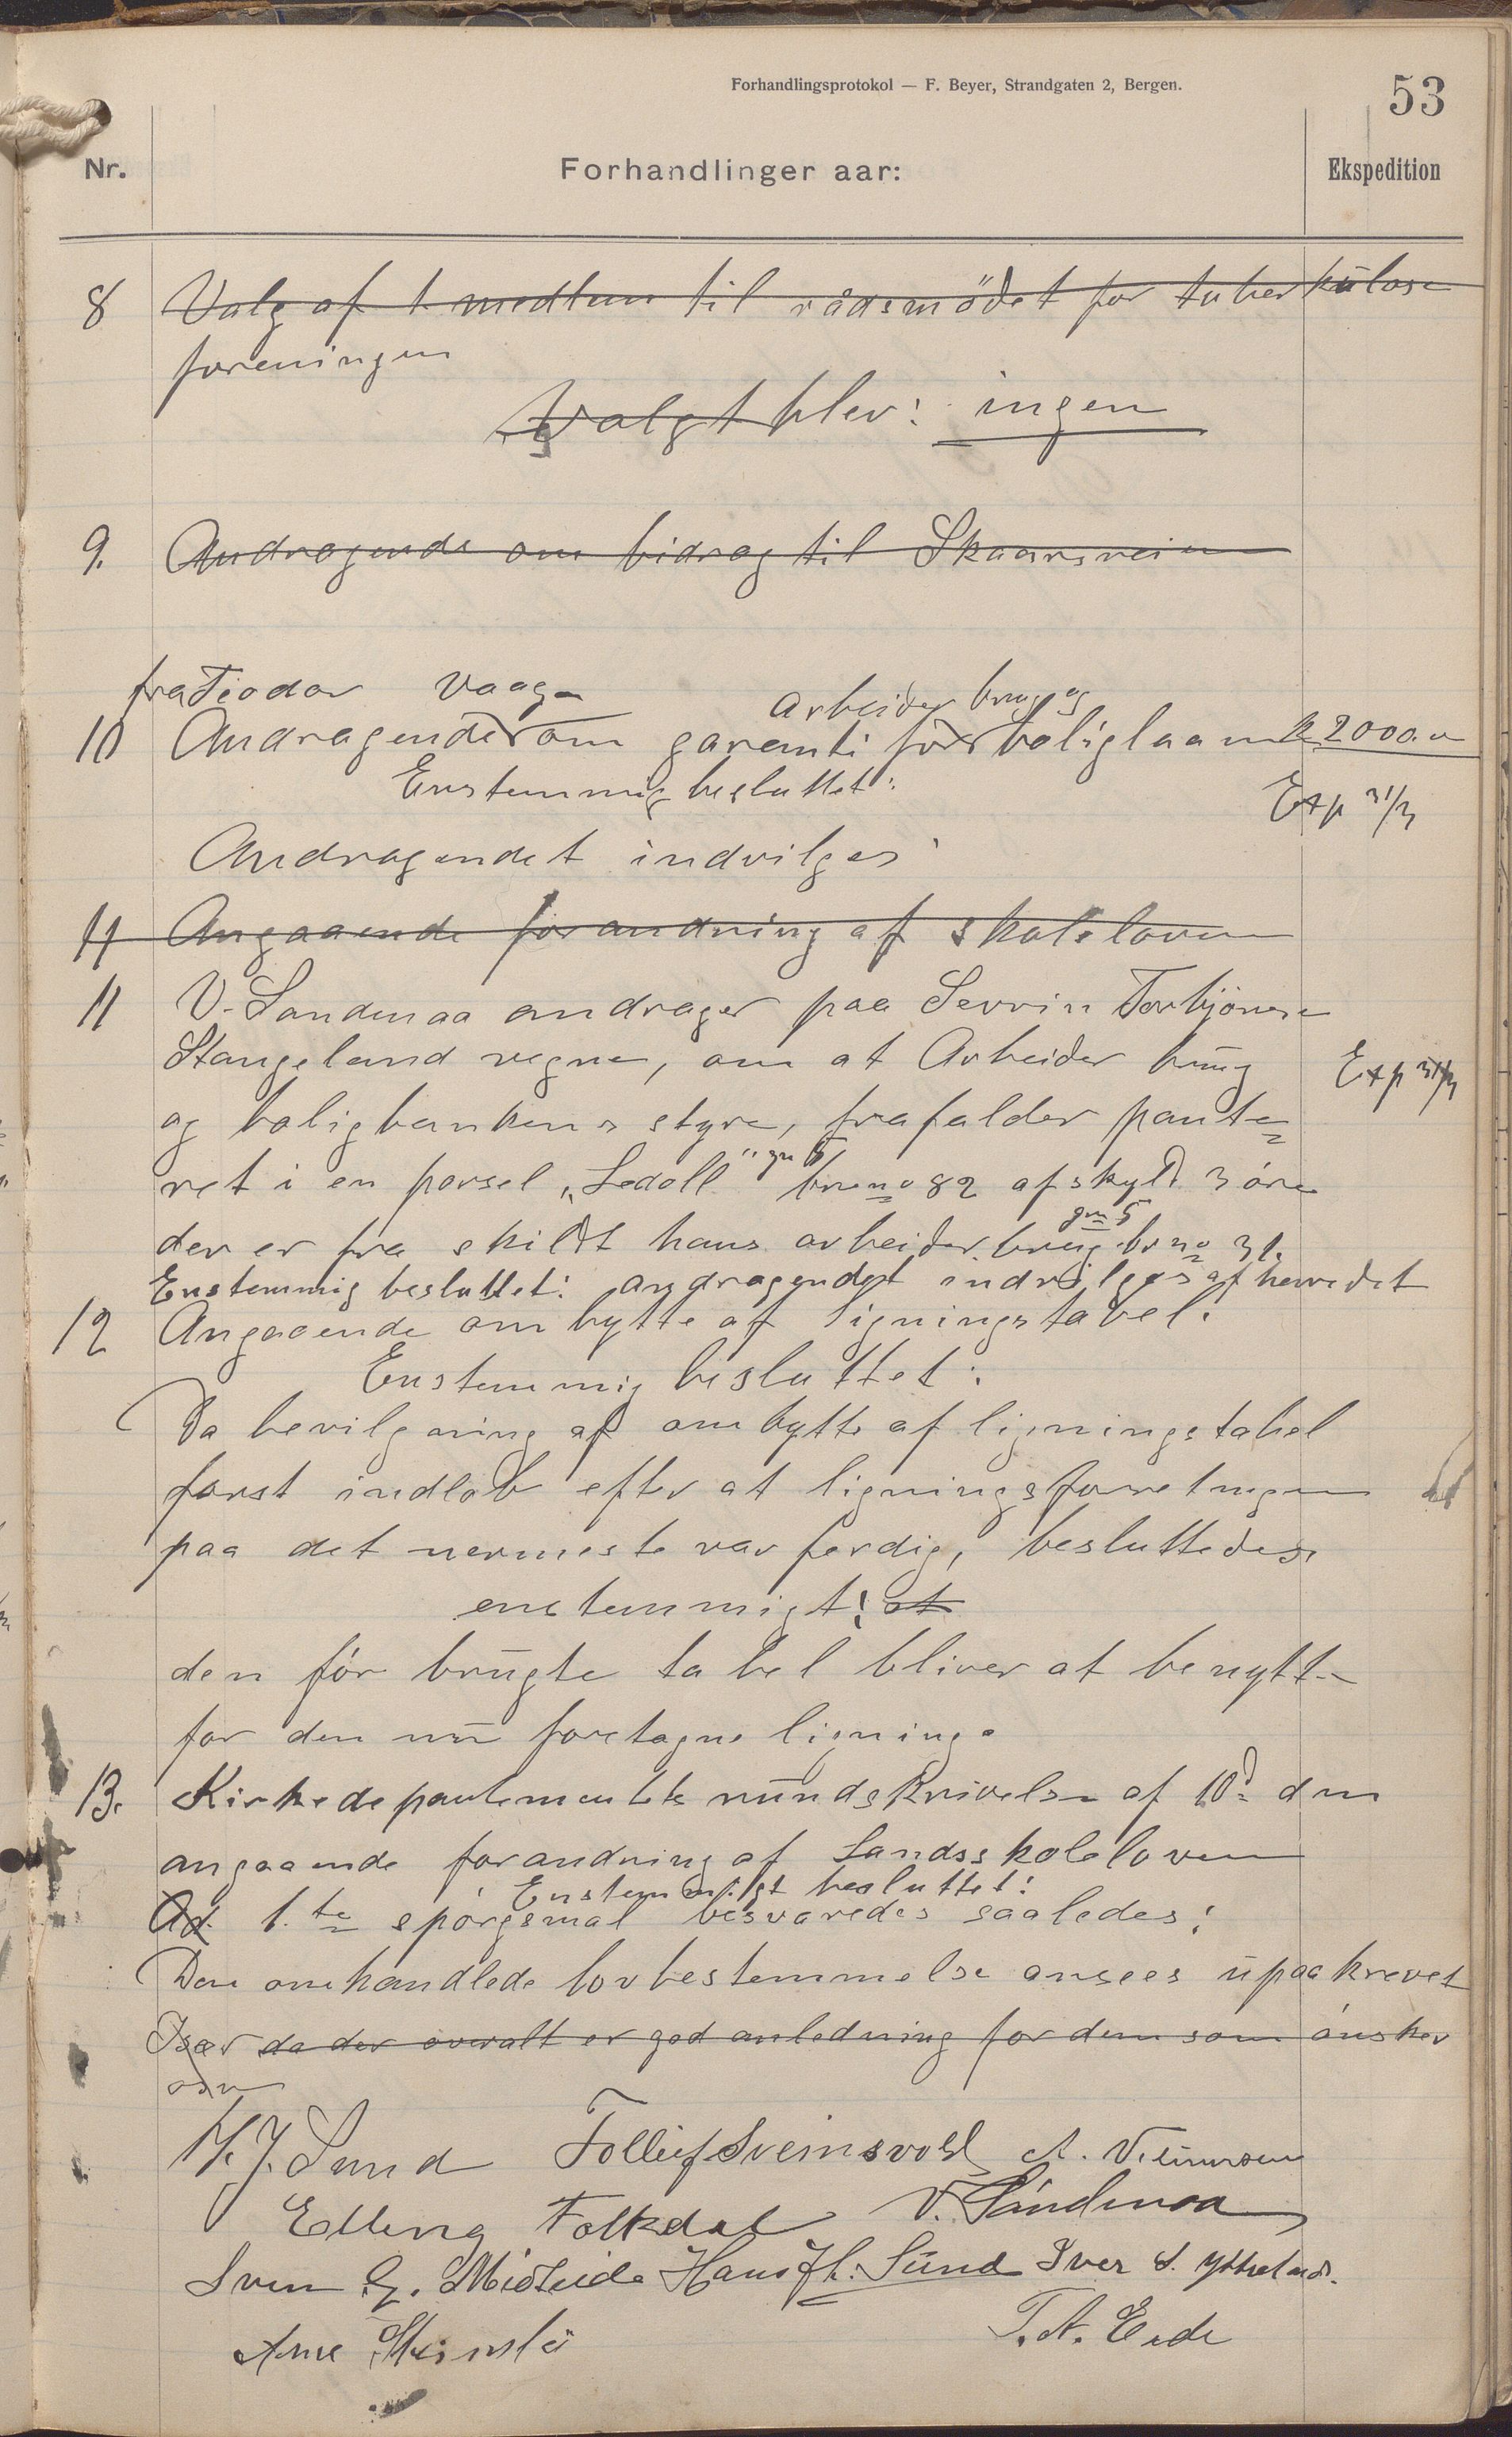 Forhandlingsprotokol — F. Beyer, Strandgaten 2, Bergen.
53
Nr.
Forhandlinger aar:
Ekspedition
8 Valg af 1 medlem til rådsmödet for tuberkulose
foreningen
Valgt blev: ingen
9. Andragende om bidrag til Skaarsveien
fra Teodor Vaage
Arbeider brug og
10 Andragende om garanti for boliglaan k 2000.
Enstemmig besluttet:
Exp 31/3
Andragendet indvilges
11 Angaaende forandring af skoleloven
11 V. Sandenaa andrager paa Severin Torbjörnsen
Stangeland vegne, om at Arbeider brug
Exp 31/3
og boligbankens styre, frafalder pante-
ret i en parsel „Ledoll" gn 5 brno 82 af skyld 3 öre
der er fra skildt hans arbeiderbrug gn 5 brno 31.
Enstemmig besluttet: andragendet indvilges af herredet
12 Angaaende ombytte af ligningstabel.
Enstemmig besluttet:
Da bevilgning af ombytte af ligningstabel
först indlöb efter at ligningsforretningen
paa det nermeste var ferdig, besluttedes
enstemmigt: at
den för brugte tabel bliver at benytte
for den nu foretagne ligning.
13. Kirkedepartementets rundskrivelse af 10d dm
angaaende forandring af Landsskoleloven
Enstemmigt besluttet:
Ad. 1.te spörgsmal besvaredes saaledes:
Den omhandlede lovbestemmelse ansees upaakrevet
Især da der overalt er god anledning for dem som önsker
osv
J. Sund Tollief Sveinsvold A.
Elling Folkedal V. Sandenaa
Sven G. Midteide Hans Jh. Sund Iver S. Ytreland.
Arne Steinslö T. A. Eide